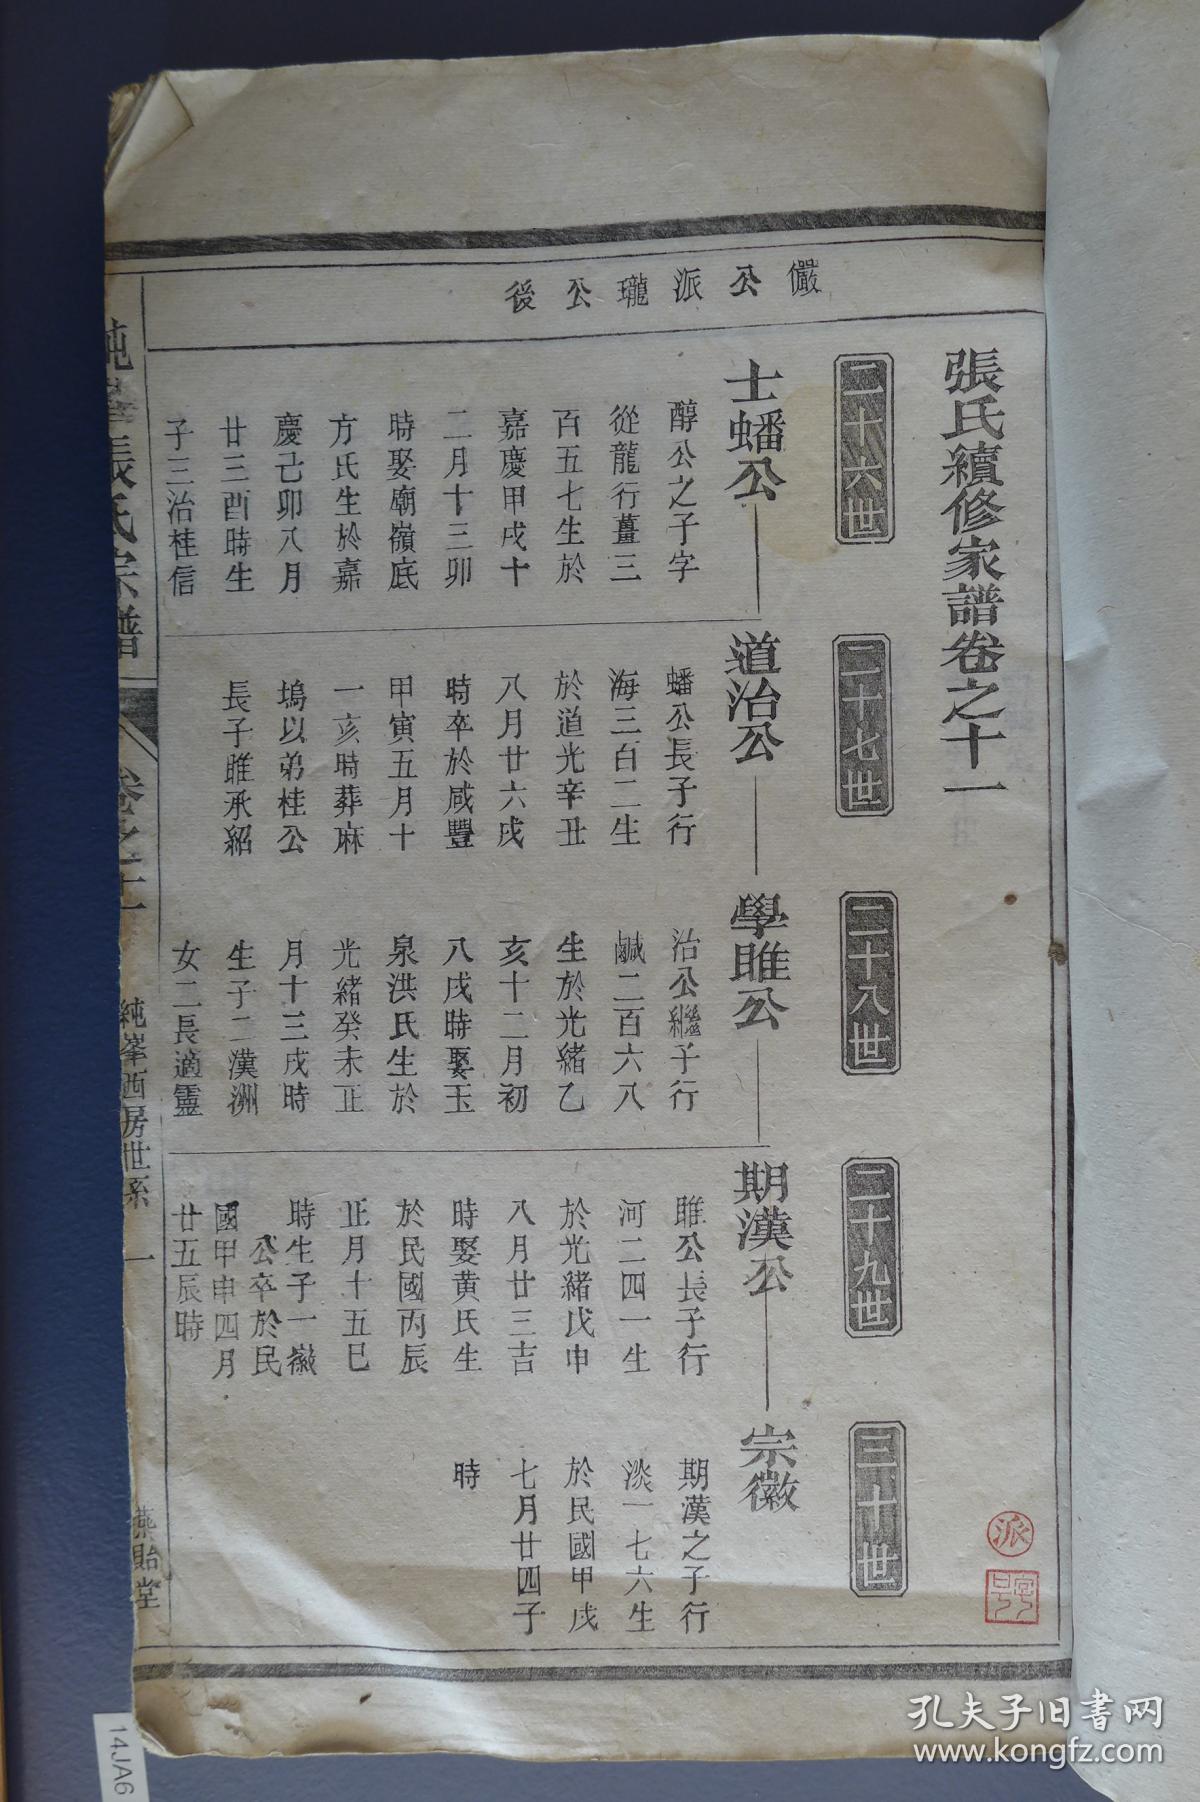 儼公派瓏公後
張氏續修家譜卷之十一
派
二十六世
二十七世
二十八世
二十九世
三十世
士蟠公
醇公之子字
從龍行薑三
百五七生於
嘉慶甲戌十
二月十三卯
時娶廟嶺底
方氏生於嘉
慶己卯八月
廿三酉時生
子三治桂信
道治公
蟠公長子行
海三百二生
於道光辛丑
八月廿六戌
時卒於咸豐
甲寅五月十
一亥時葬麻
塢以弟桂公
長子雎承紹
學雎公
治公繼子行
鹹二百六八
生於光緒乙
亥十二月初
八戌時娶玉
泉洪氏生於
光緒癸未正
月十三戌時
生子二漢洲
女二長適靈
期漢公
雎公長子行
河二四一生
於光緒戊申
八月廿三吉
時娶黄氏生
於民國丙辰
正月十五巳
時生子一徽
公卒於民
國甲申四月
廿五辰時
宗徽
期漢之子行
淡一七六生
於民國甲戌
七月廿四子
時
純峯張氏宗譜
卷之十一
純峯西房世系
一
燕貽堂
14JA6
孔夫子旧书网
www.kongfz.com